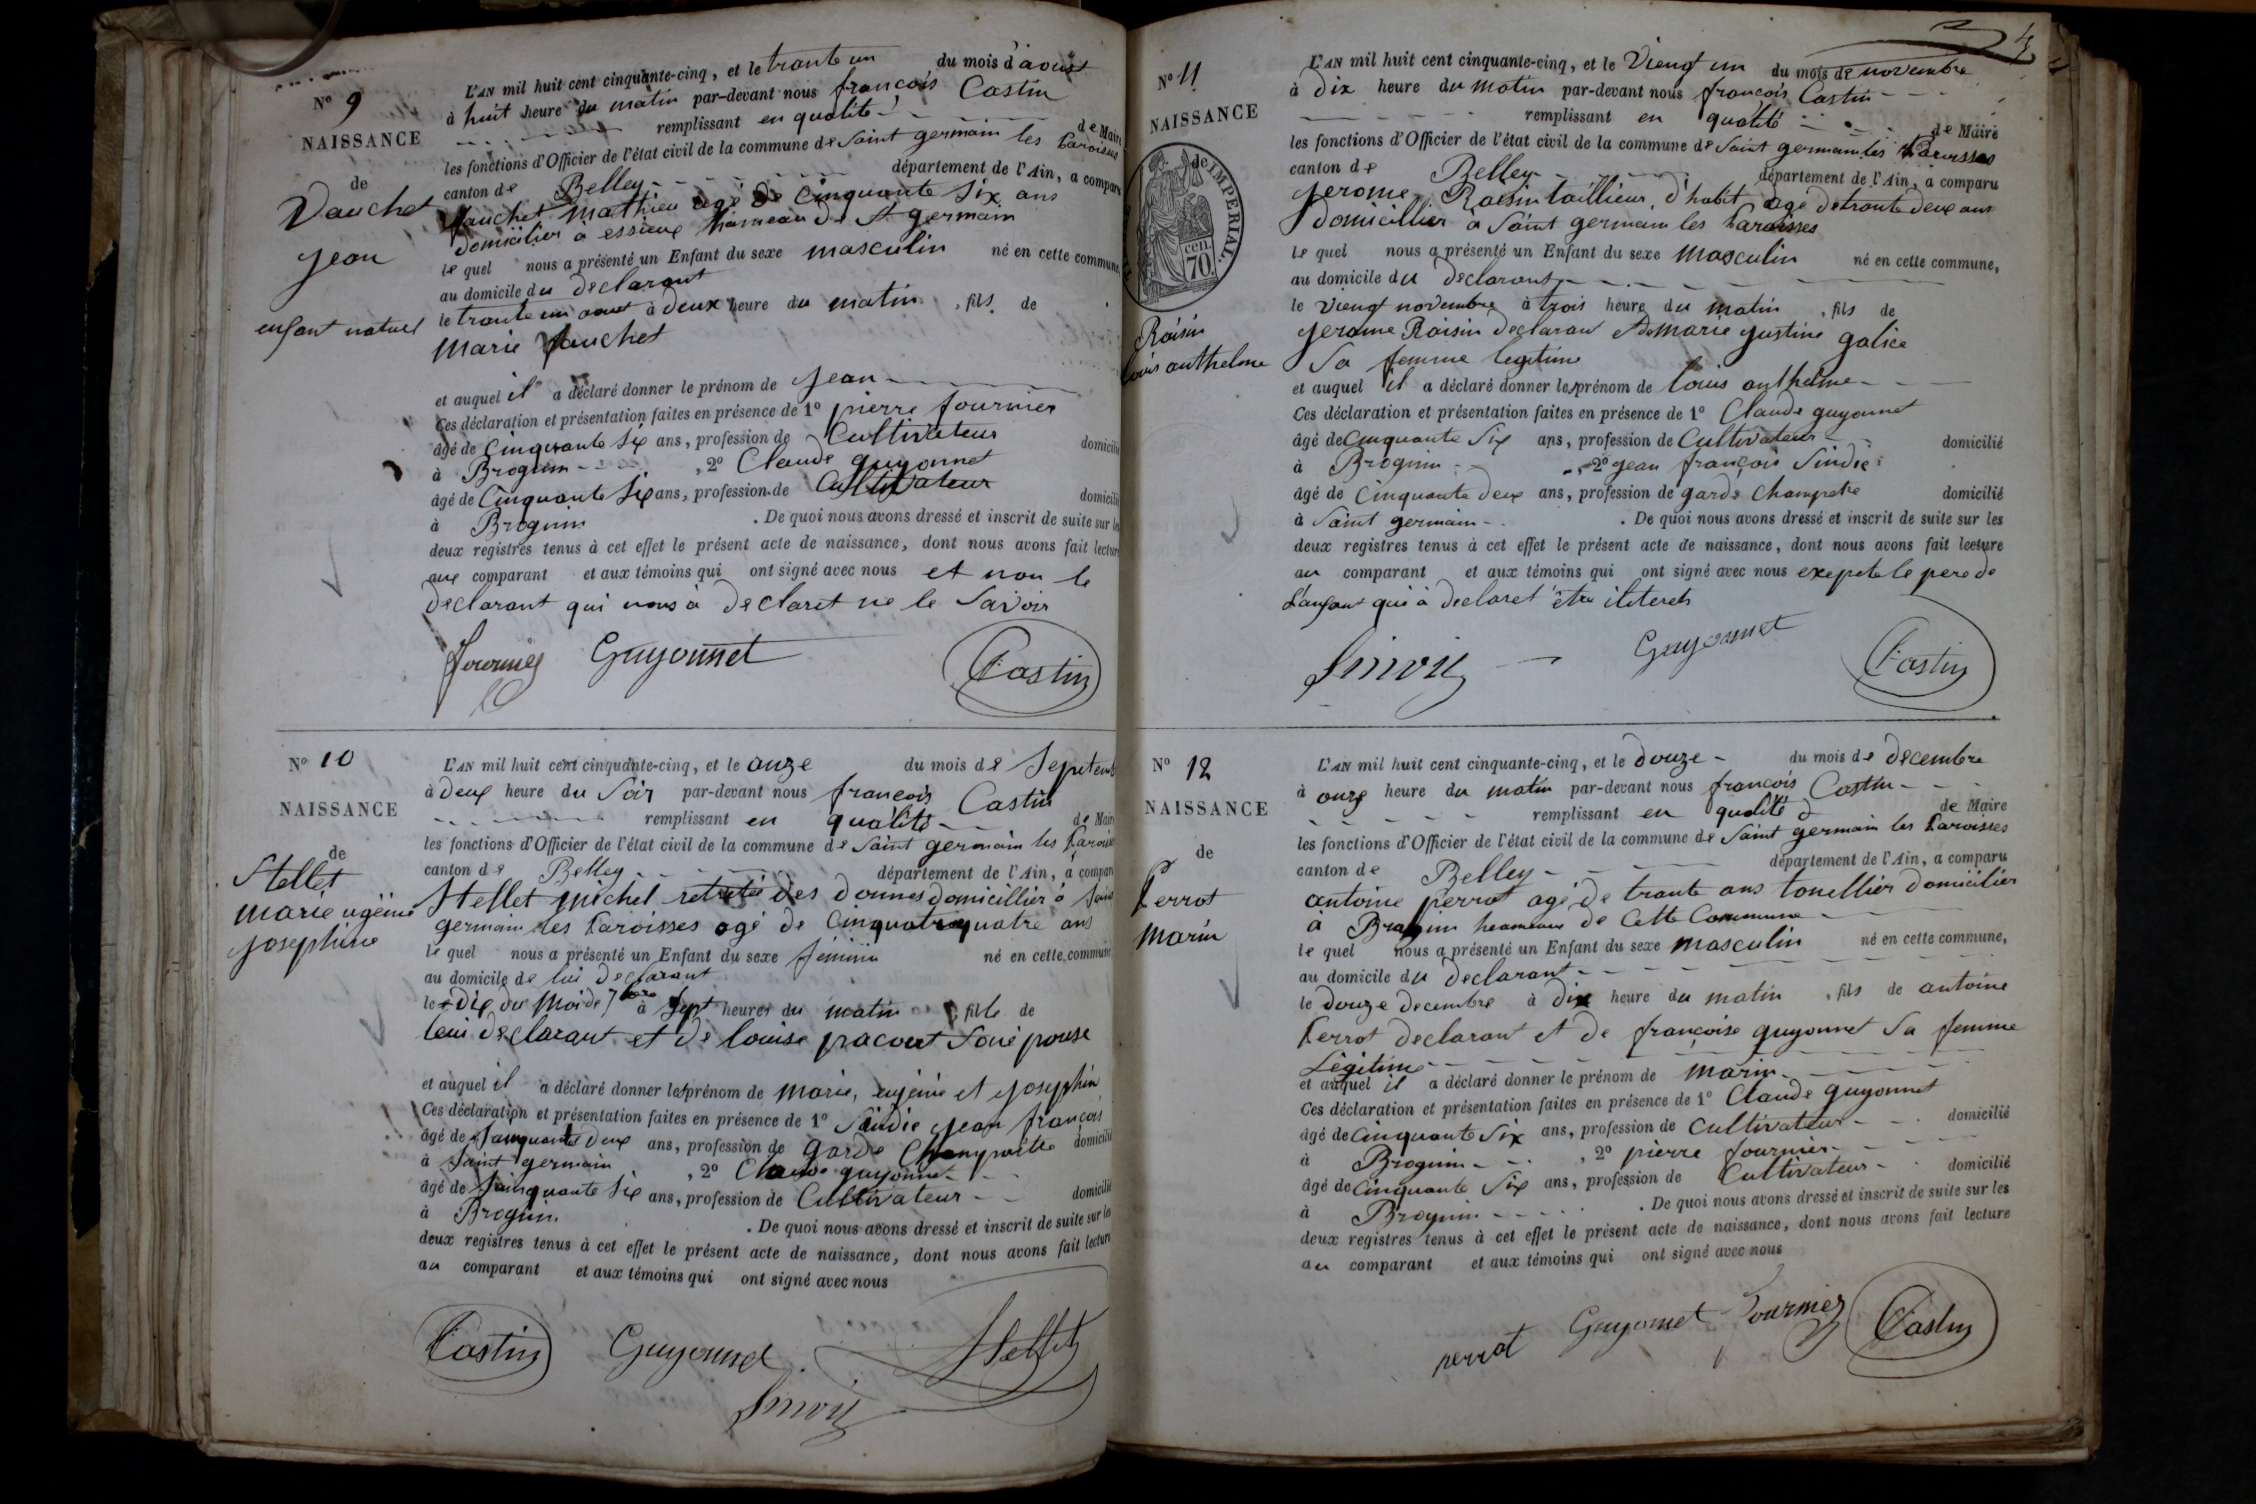 Nº 9
NAISSANCE
de
Vauchet
Jean
enfant naturel
L'AN mil huit cent cinquante-cinq, et le trante un du mois d'aoust
à huit heure du matin par-devant nous francois Castin
remplissant en qualité de Maire
les fonctions d'Officier de l'état civil de la commune de Saint germain les Paroisses
canton de Belley département de l'Ain, a comparu
Vauchet Mathieu agé de Cinquante Six ans
domicilier à essieux hameau de St germain
le quel nous a présenté un Enfant du sexe masculin né en cette commune,
au domicile du declarant
le trante un aout à deux heure du matin, fils de
Marie Vauchet
et auquel il a déclaré donner le prénom de Jean
Ces déclaration et présentation faites en présence de 1º pierre fournier
âgé de Cinquante Six ans, profession de Cultivateur domicilié
à Brognin, 2º Claude guyonnet
âgé de Cinquante Six ans, profession de Cultivateur domicilié
à Brognin. De quoi nous avons dressé et inscrit de suite sur les
deux registres tenus à cet effet le présent acte de naissance, dont nous avons fait lecture
aux comparant et aux témoins qui ont signé avec nous et non le
declarant qui nous à declaret ne le Savoir
Fournier Guyonnet Castin
Nº 10
NAISSANCE
de
Stellet
marie ugénie
josephine
L'AN mil huit cent cinquante-cinq, et le onze du mois de Septemb
à deux heure du Soir par-devant nous francois Castin
remplissant en qualité de Maire
les fonctions d'Officier de l'état civil de la commune de Saint germain les Paroisses
canton de Belley département de l'Ain, a comparu
Stellet michel retraité des dounes domicillier à Saint
germain les Paroisses agé de Cinquante quatre ans
le quel nous a présenté un Enfant du sexe féminin né en cette commune
au domicile de lui declarant
le dix du Mois de 7bre à Sept heures du matin, fille de
leui declarant et de louise pracout Son épouse
et auquel il a déclaré donner les prénom de marie, eugénie et Josephin
Ces déclaration et présentation faites en présence de 1º Sindic jean françois
âgé de Sainquante deux ans, profession de garde Champaitre domicilié
à Saint germain, 2º Claude guyonnet
âgé de Sainquante Six ans, profession de Cultivateur domicilié
à Brognin. De quoi nous avons dressé et inscrit de suite sur les
deux registres tenus à cet effet le présent acte de naissance, dont nous avons fait lecture
au comparant et aux témoins qui ont signé avec nous
Castin Guyonnet Stellet
Sindic
4
Nº 11
NAISSANCE
de
IMPERIAL.
70 cen.
Raisin
louis anthelme
L'AN mil huit cent cinquante-cinq, et le Viengt un du mois de novembre
à dix heure du matin par-devant nous françois Castin
remplissant en qualité de Maire
les fonctions d'Officier de l'état civil de la commune de Saint germain les Paroisses
canton de Belley département de l'Ain, a comparu
Jerome Raisin taillieur d'habit agé de trante deux ans
domicillier à Saint germain les Paroisses
le quel nous a présenté un Enfant du sexe masculin né en cette commune,
au domicile du declarant
le viengt novembre à trois heure du matin, fils de
Jerome Raisin declaran et de marie justine galice
Sa femme legitime
et auquel il a déclaré donner les prénom de louis anthelme
Ces déclaration et présentation faites en présence de 1º Claude guyonnet
âgé de Cinquante Six ans, profession de Cultivateur domicilié
à Brognin, 2º jean françois Sindic
âgé de Cinquante deux ans, profession de garde Champetre domicilié
à Saint germain. De quoi nous avons dressé et inscrit de suite sur les
deux registres tenus à cet effet le présent acte de naissance, dont nous avons fait lecture
au comparant et aux témoins qui ont signé avec nous exepete le pere de
L'anfant qui à declaret être iliteret
Sindic Guyonnet Castin
Nº 12
NAISSANCE
de
Perrot
Marin
L'AN mil huit cent cinquante-cinq, et le douze du mois de decembre
à onze heure du matin par-devant nous françois Castin
remplissant en qualité de Maire
les fonctions d'Officier de l'état civil de la commune de Saint germain les Paroisses
canton de Belley département de l'Ain, a comparu
antoine perrot agé de trante ans tonellier domicilier
à Brognin heameaux de Cette Commune
le quel nous a présenté un Enfant du sexe masculin né en cette commune,
au domicile du declarant
le douze decembre à dix heure du matin, fils de antoine
Perrot declarant et de françoise guyonnet Sa femme
Légitime
et auquel il a déclaré donner le prénom de marin
Ces déclaration et présentation faites en présence de 1º Claude guyonnet
âgé de Cinquante Six ans, profession de Cultivateur domicilié
à Brognin, 2º pierre fournier
âgé de Cinquante Six ans, profession de Cultivateur domicilié
à Brognin. De quoi nous avons dressé et inscrit de suite sur les
deux registres tenus à cet effet le présent acte de naissance, dont nous avons fait lecture
au comparant et aux témoins qui ont signé avec nous
perrot Guyonnet Fournier Castin